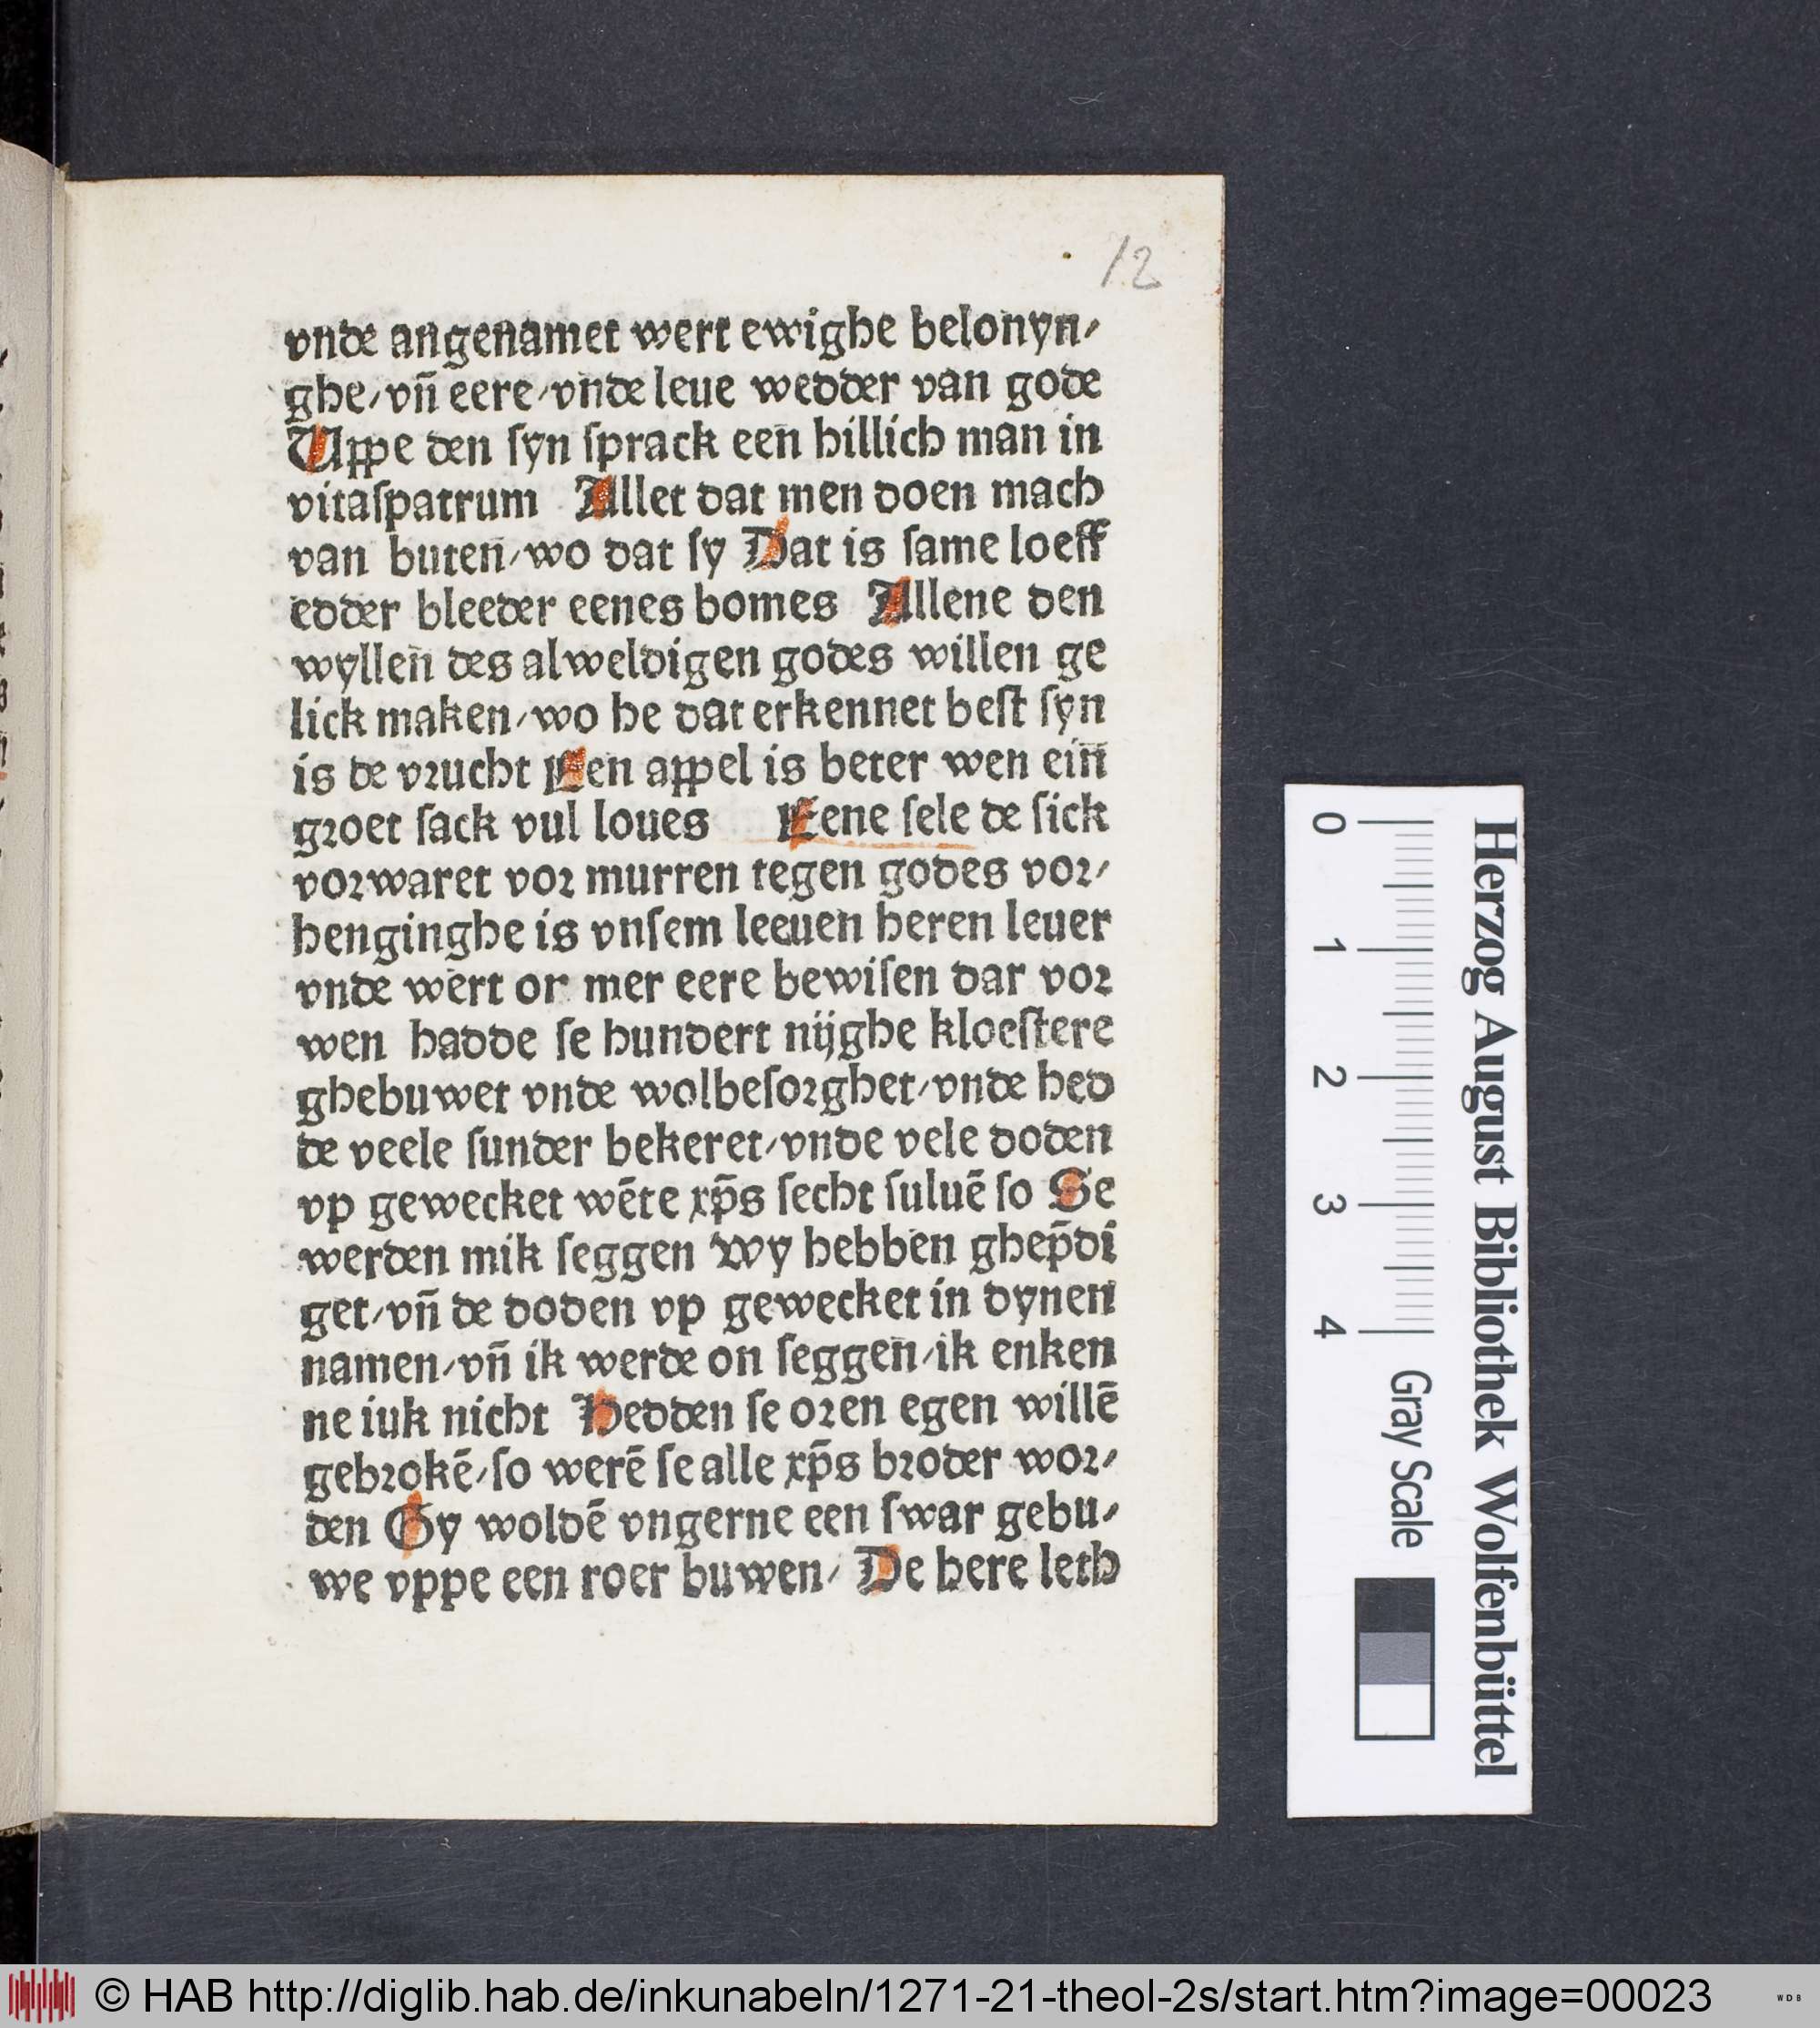 12
vnde angenamet wert ewighe belonyn⸗
ghe/vn̄ eere/vnde leue wedder van gode
Uppe den ſyn ſprack een hillich man in
vitaſpatrum Allet dat men doen mach
van buten/wo dat ſy Dat is ſame loeff
edder bleeder eenes bomes Allene den
wyllen des alweldigen godes willen ge
lick maken/wo he dat erkennet beſt ſyn
is de vꝛucht Een appel is beter wen ein
gꝛoet ſack vul loues Eene ſele de ſick
voꝛwaret voꝛ murren tegen godes voꝛ⸗
henginghe is vnſem leeuen heren leuer
vnde wert or mer eere bewiſen dar voꝛ
wen hadde ſe hundert nijghe kloeſtere
ghebuwet vnde wolbeſoꝛghet/vnde hed
de veele ſunder bekeret/vnde vele doden
vp gewecket wēte xp̄s ſecht ſuluē ſo Se
werden mik ſeggen Wy hebben ghep̄di
get/vn̄ de doden vp gewecket in dynen
namen/vn̄ ik werde on ſeggen/ik enken
ne iuk nicht Hedden ſe oꝛen egen willē
gebꝛokē/ſo werē ſe alle xp̄s bꝛoder woꝛ⸗
den Gy woldē vngerne een ſwar gebu⸗
we vppe een roer buwen/ De here leth
Herzog August Bibliothek Wolfenbüttel
0 1 2 3 4 Gray Scale
© HAB http://diglib.hab.de/inkunabeln/1271-21-theol-2s/start.htm?image=00023
WDB